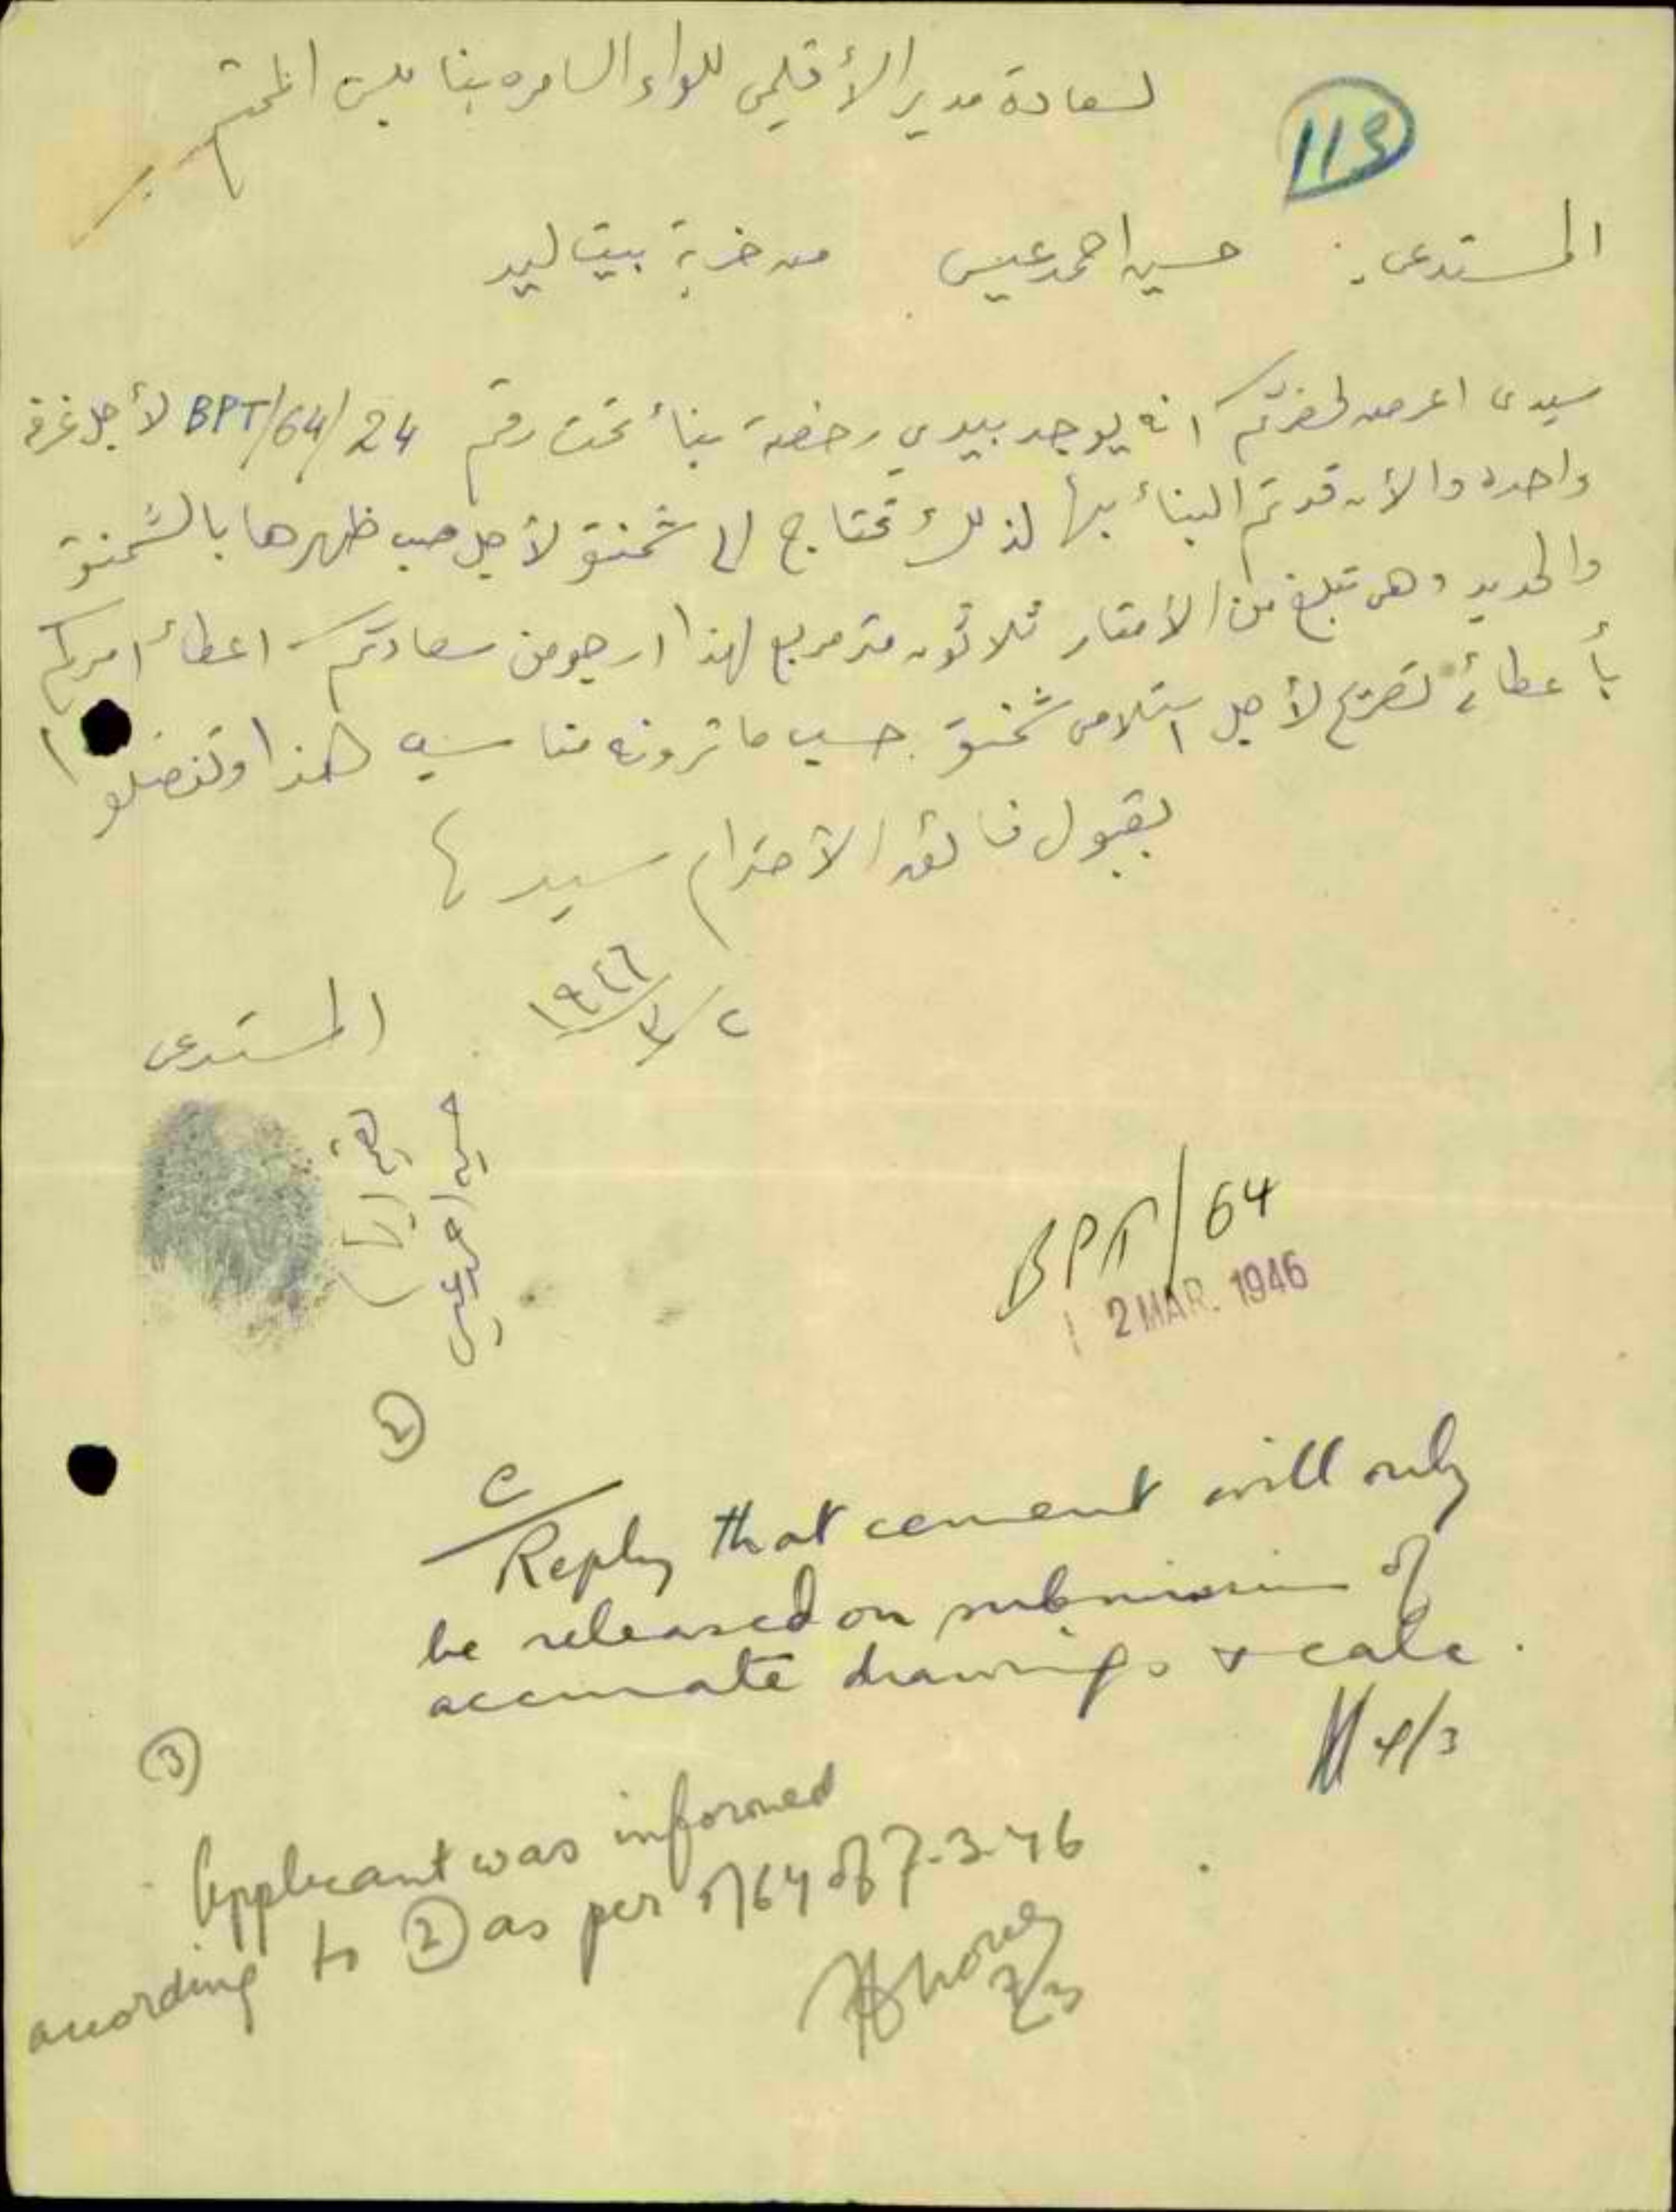 لسعادة مدير الأقليمي للواء السامره بنابلس المحترم
113
المستدعي: حسين احمد عيسى من خربة بيت ليد
سيدي اعرض لحضرتكم انه يوجد بيدي رخصة بناء تحت رقم BPT/64/24 لأجل غرفة
واحده والأن قد تم البناء بها لذلك تحتاج الى شمنتو لأجل صب ظهرها بالشمنتو
والحديد وهي تبلغ من الأمتار ثلاثون متر مربع لهذا ارجو من سعادتكم اعطاء امركم
بأعطائي تصريح لأجل استلامي شمنتو حسب ما ترونه مناسب هذا وتفضلوا
بقبول فائق الأحترام سيدي
٢/٣/١٩٤٦
المستدعي
حسين احمد عيسى
BPT/64
2 MAR. 1946
2
C/
Reply that cement will only
be released on submission of
accurate drawings & scale.
4/3
3
Applicant was informed
according to 2 as per T/64 of 7.3.46
7/3